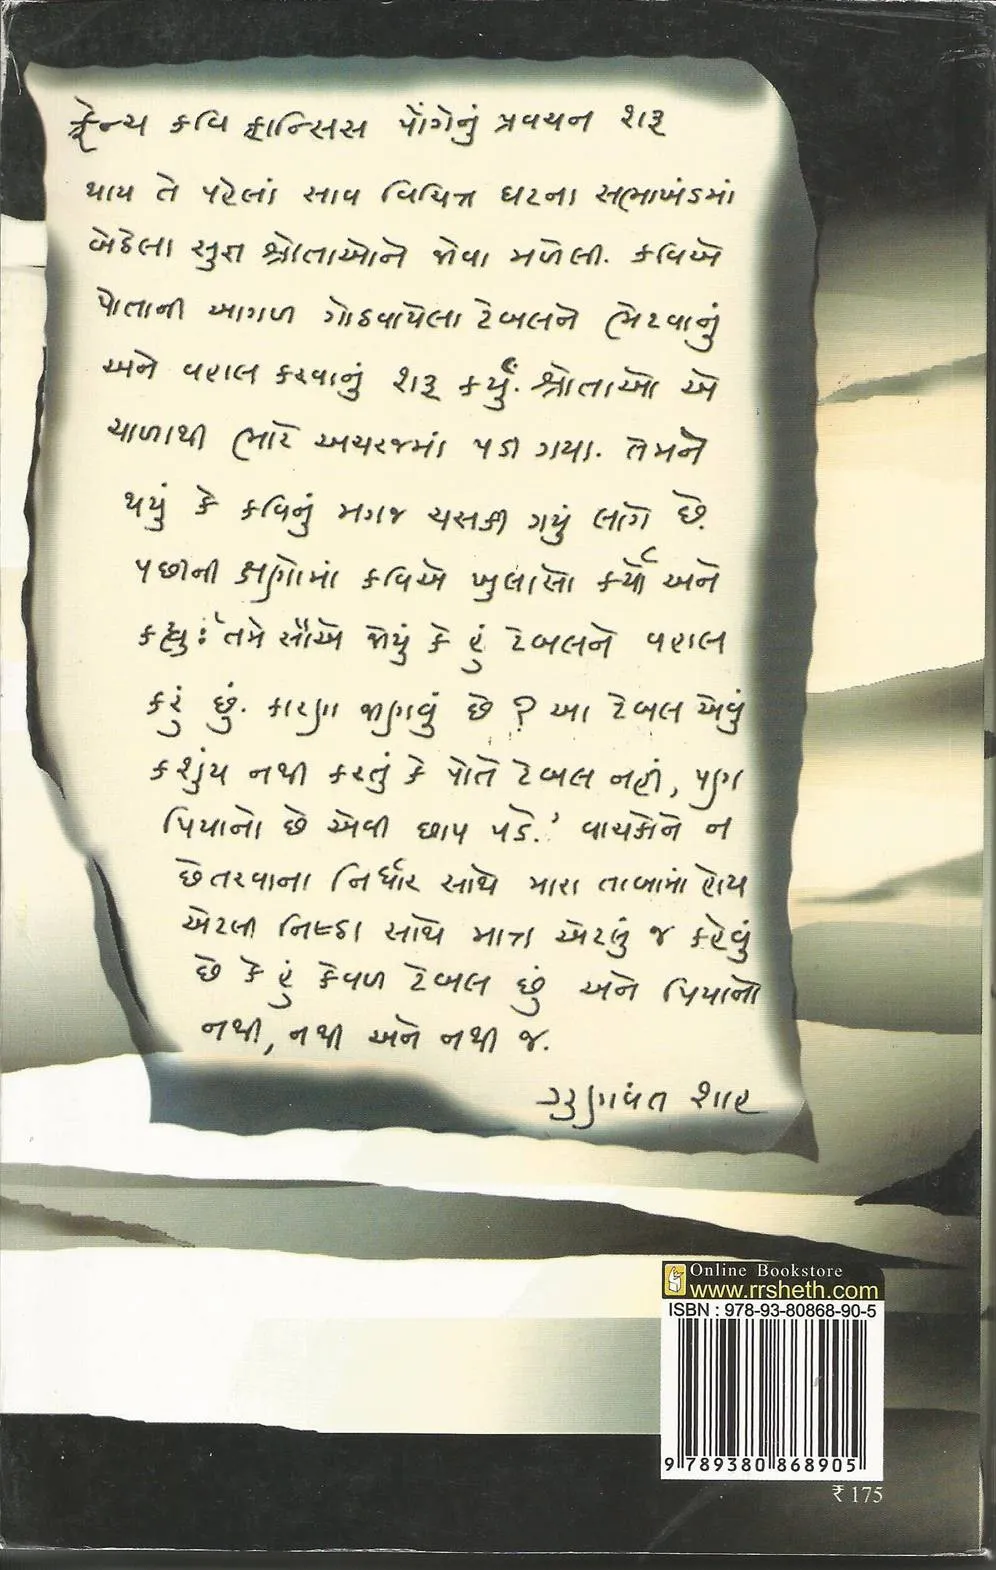 ફ્રેન્ચ કવિ ફ્રાન્સિસ પોંગેનું પ્રવચન શરૂ
થાય તે પહેલાં સાવ વિચિત્ર ઘટના સભાખંડમાં
બેઠેલા સુજ્ઞ શ્રોતાઓને જોવા મળેલી. કવિએ
પોતાની આગળ ગોઠવાયેલા ટેબલને ભેટવાનું
અને વહાલ કરવાનું શરૂ કર્યું. શ્રોતાઓ એ
ચાળાથી ભારે અચરજમાં પડી ગયા. તેમને
થયું કે કવિનું મગજ ચસકી ગયું લાગે છે.
પછીની ક્ષણોમાં કવિએ ખુલાસો કર્યો અને
કહ્યું : ‘તમે સૌએ જોયું કે હું ટેબલને વહાલ
કરું છું. કારણ જાણવું છે ? આ ટેબલ એવું
કશુંય નથી કરતું કે પોતે ટેબલ નહીં, પણ
પિયાનો છે એવી છાપ પડે.’ વાચકોને ન
છેતરવાના નિર્ધાર સાથે મારા તાબામાં હોય
એટલી નિષ્ઠા સાથે માત્ર એટલું જ કહેવું
છે કે હું કેવળ ટેબલ છું અને પિયાનો
નથી, નથી અને નથી જ.
ગુણવંત શાહ
Online Bookstore
www.rrsheth.com
ISBN : 978-93-80868-90-5
9 789380 868905
₹ 175